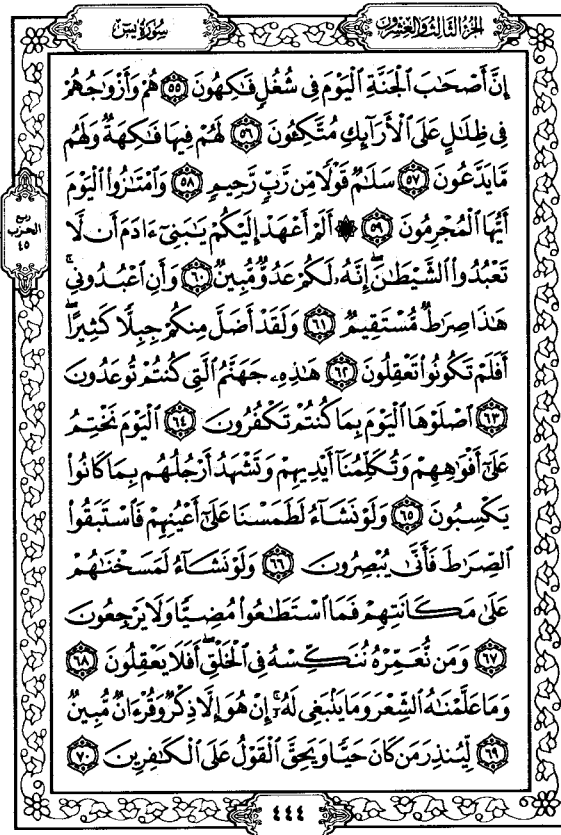 الجزء الثالث والعشرون
سورة يس
إِنَّ أَصْحَٰبَ ٱلْجَنَّةِ ٱلْيَوْمَ فِى شُغُلٍ فَٰكِهُونَ ٥٥ هُمْ وَأَزْوَٰجُهُمْ
فِى ظِلَٰلٍ عَلَى ٱلْأَرَآئِكِ مُتَّكِـُٔونَ ٥٦ لَهُمْ فِيهَا فَٰكِهَةٌ وَلَهُم
مَّا يَدَّعُونَ ٥٧ سَلَٰمٌ قَوْلًا مِّن رَّبٍّ رَّحِيمٍ ٥٨ وَٱمْتَٰزُوا۟ ٱلْيَوْمَ
أَيُّهَا ٱلْمُجْرِمُونَ ٥٩ ۞ أَلَمْ أَعْهَدْ إِلَيْكُمْ يَٰبَنِىٓ ءَادَمَ أَن لَّا
تَعْبُدُوا۟ ٱلشَّيْطَٰنَ ۖ إِنَّهُۥ لَكُمْ عَدُوٌّ مُّبِينٌ ٦٠ وَأَنِ ٱعْبُدُونِى ۚ
هَٰذَا صِرَٰطٌ مُّسْتَقِيمٌ ٦١ وَلَقَدْ أَضَلَّ مِنكُمْ جِبِلًّا كَثِيرًا ۖ
أَفَلَمْ تَكُونُوا۟ تَعْقِلُونَ ٦٢ هَٰذِهِۦ جَهَنَّمُ ٱلَّتِى كُنتُمْ تُوعَدُونَ
٦٣ ٱصْلَوْهَا ٱلْيَوْمَ بِمَا كُنتُمْ تَكْفُرُونَ ٦٤ ٱلْيَوْمَ نَخْتِمُ
عَلَىٰٓ أَفْوَٰهِهِمْ وَتُكَلِّمُنَآ أَيْدِيهِمْ وَتَشْهَدُ أَرْجُلُهُم بِمَا كَانُوا۟
يَكْسِبُونَ ٦٥ وَلَوْ نَشَآءُ لَطَمَسْنَا عَلَىٰٓ أَعْيُنِهِمْ فَٱسْتَبَقُوا۟
ٱلصِّرَٰطَ فَأَنَّىٰ يُبْصِرُونَ ٦٦ وَلَوْ نَشَآءُ لَمَسَخْنَٰهُمْ
عَلَىٰ مَكَانَتِهِمْ فَمَا ٱسْتَطَٰعُوا۟ مُضِيًّا وَلَا يَرْجِعُونَ
٦٧ وَمَن نُّعَمِّرْهُ نُنَكِّسْهُ فِى ٱلْخَلْقِ ۖ أَفَلَا يَعْقِلُونَ ٦٨
وَمَا عَلَّمْنَٰهُ ٱلشِّعْرَ وَمَا يَنۢبَغِى لَهُۥٓ ۚ إِنْ هُوَ إِلَّا ذِكْرٌ وَقُرْءَانٌ مُّبِينٌ
٦٩ لِّيُنذِرَ مَن كَانَ حَيًّا وَيَحِقَّ ٱلْقَوْلُ عَلَى ٱلْكَٰفِرِينَ ٧٠
ربع
الحزب
٤٥
٤٤٤